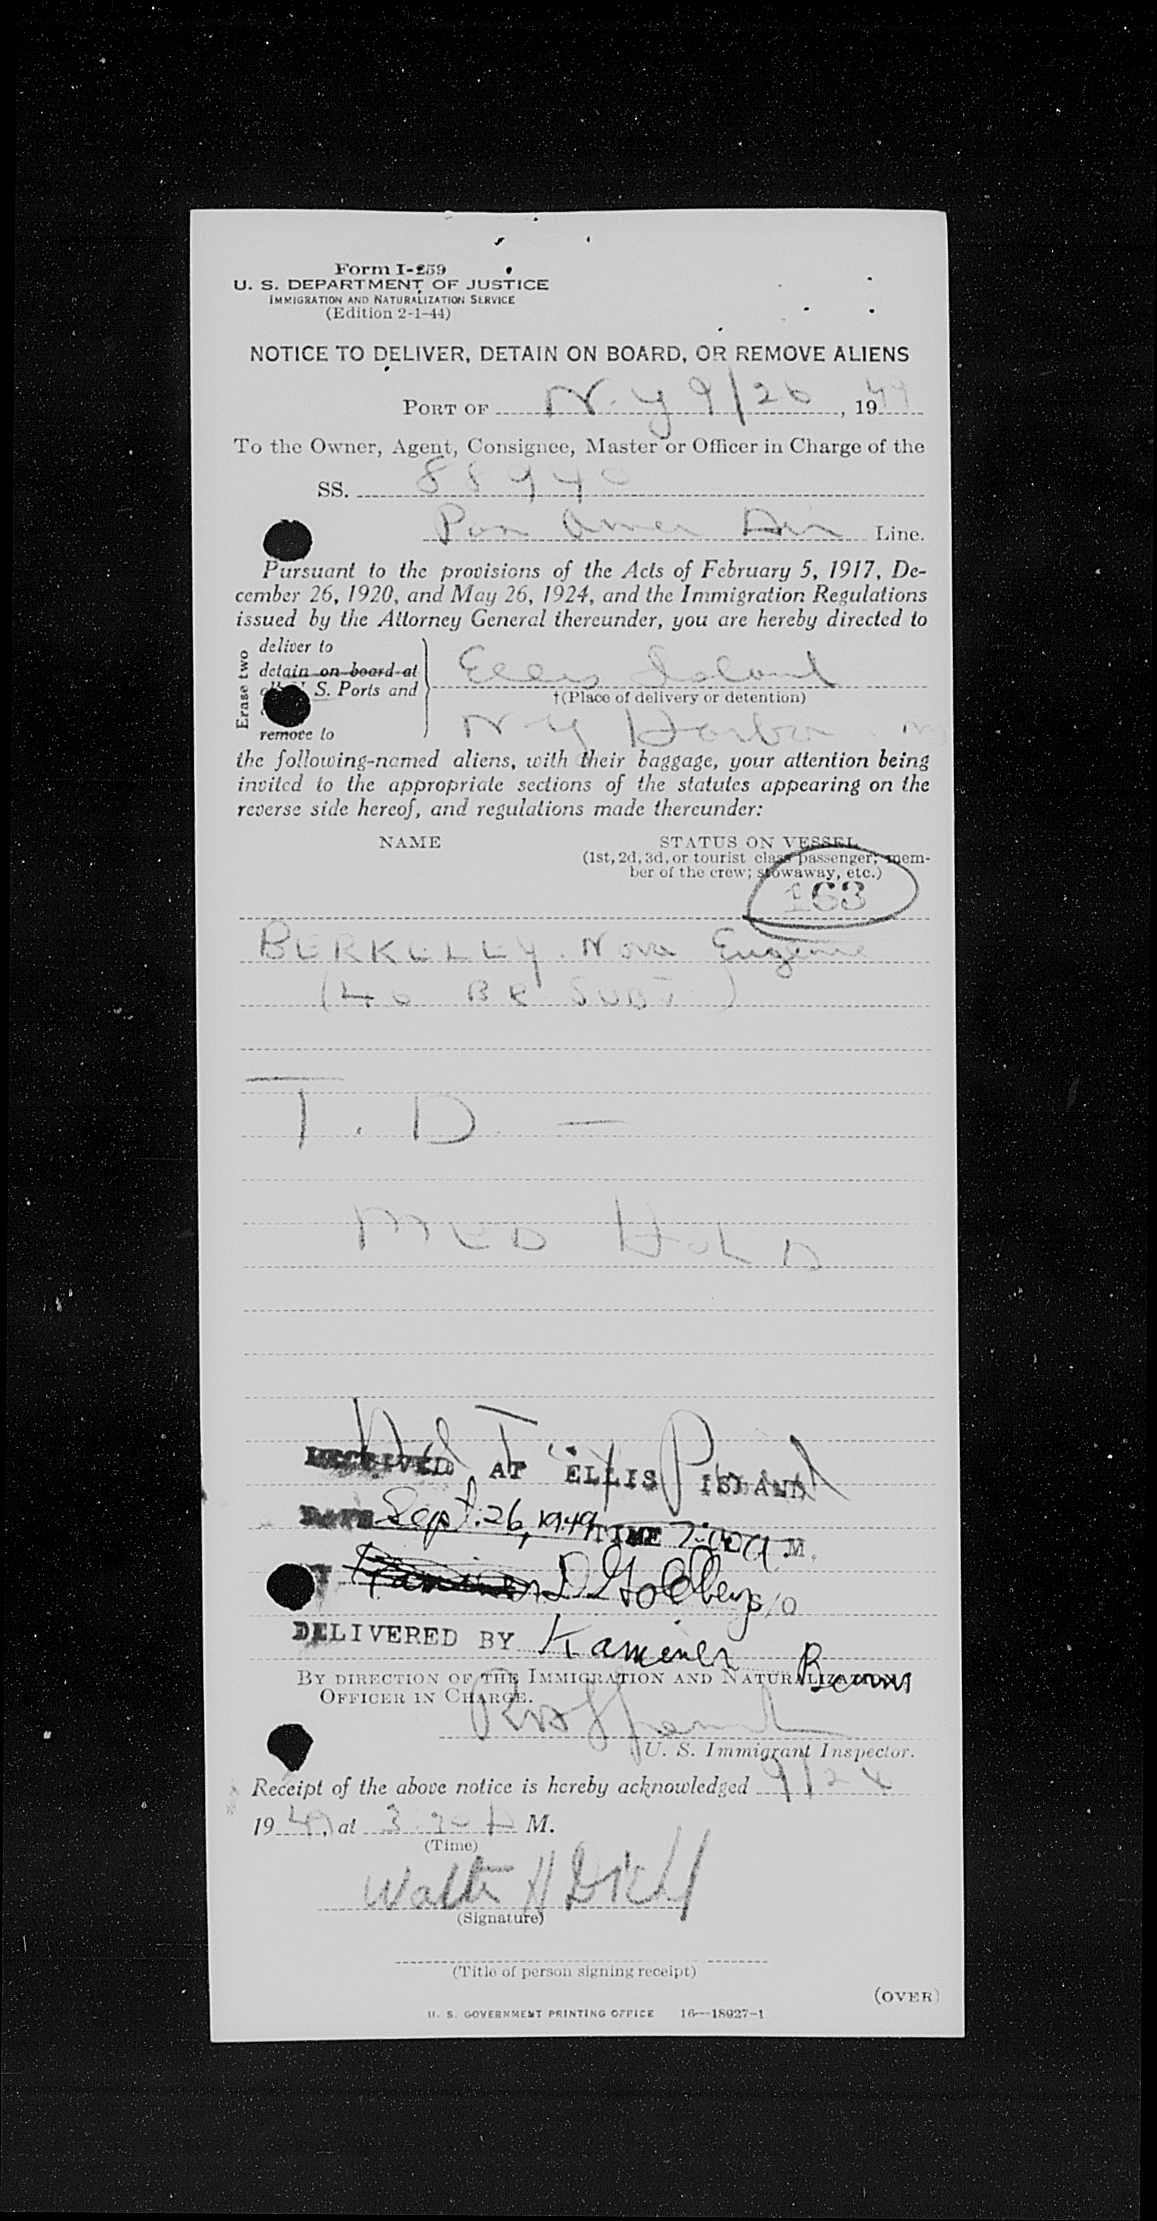 Form I-259
U. S. DEPARTMENT OF JUSTICE
IMMIGRATION AND NATURALIZATION SERVICE
(Edition 2-1-44)
NOTICE TO DELIVER, DETAIN ON BOARD, OR REMOVE ALIENS
PORT OF N. Y 9/26, 1949
To the Owner, Agent, Consignee, Master or Officer in Charge of the
SS. 88940
Pan Amer Air Line.
Pursuant to the provisions of the Acts of February 5, 1917, De-
cember 26, 1920, and May 26, 1924, and the Immigration Regulations
issued by the Attorney General thereunder, you are hereby directed to
Erase two
deliver to
detain on board at
S. Ports and
remove to
Ellis Island
†(Place of delivery or detention)
N Y Harbor
the following-named aliens, with their baggage, your attention being
invited to the appropriate sections of the statutes appearing on the
reverse side hereof, and regulations made thereunder:
NAME STATUS ON VESSEL
(1st, 2d, 3d, or tourist class passenger; mem-
ber of the crew; stowaway, etc.)
163
BERKELEY. Nora Eugenie
(40 BR SUBJ)
T. D. —
MED HOLD
RECEIVED AT ELLIS ISLAND
DATE Sept. 26, 1949 TIME 7:00 A. M.
D Goldberg S/O
DELIVERED BY Kaminer
BY DIRECTION OF THE IMMIGRATION AND NATURALIZATION
OFFICER IN CHARGE.
U. S. Immigrant Inspector.
Receipt of the above notice is hereby acknowledged 9/26
1949, at M.
(Time)
Walter H
(Signature)
(Title of person signing receipt)
(OVER)
U. S. GOVERNMENT PRINTING OFFICE 16—18927-1